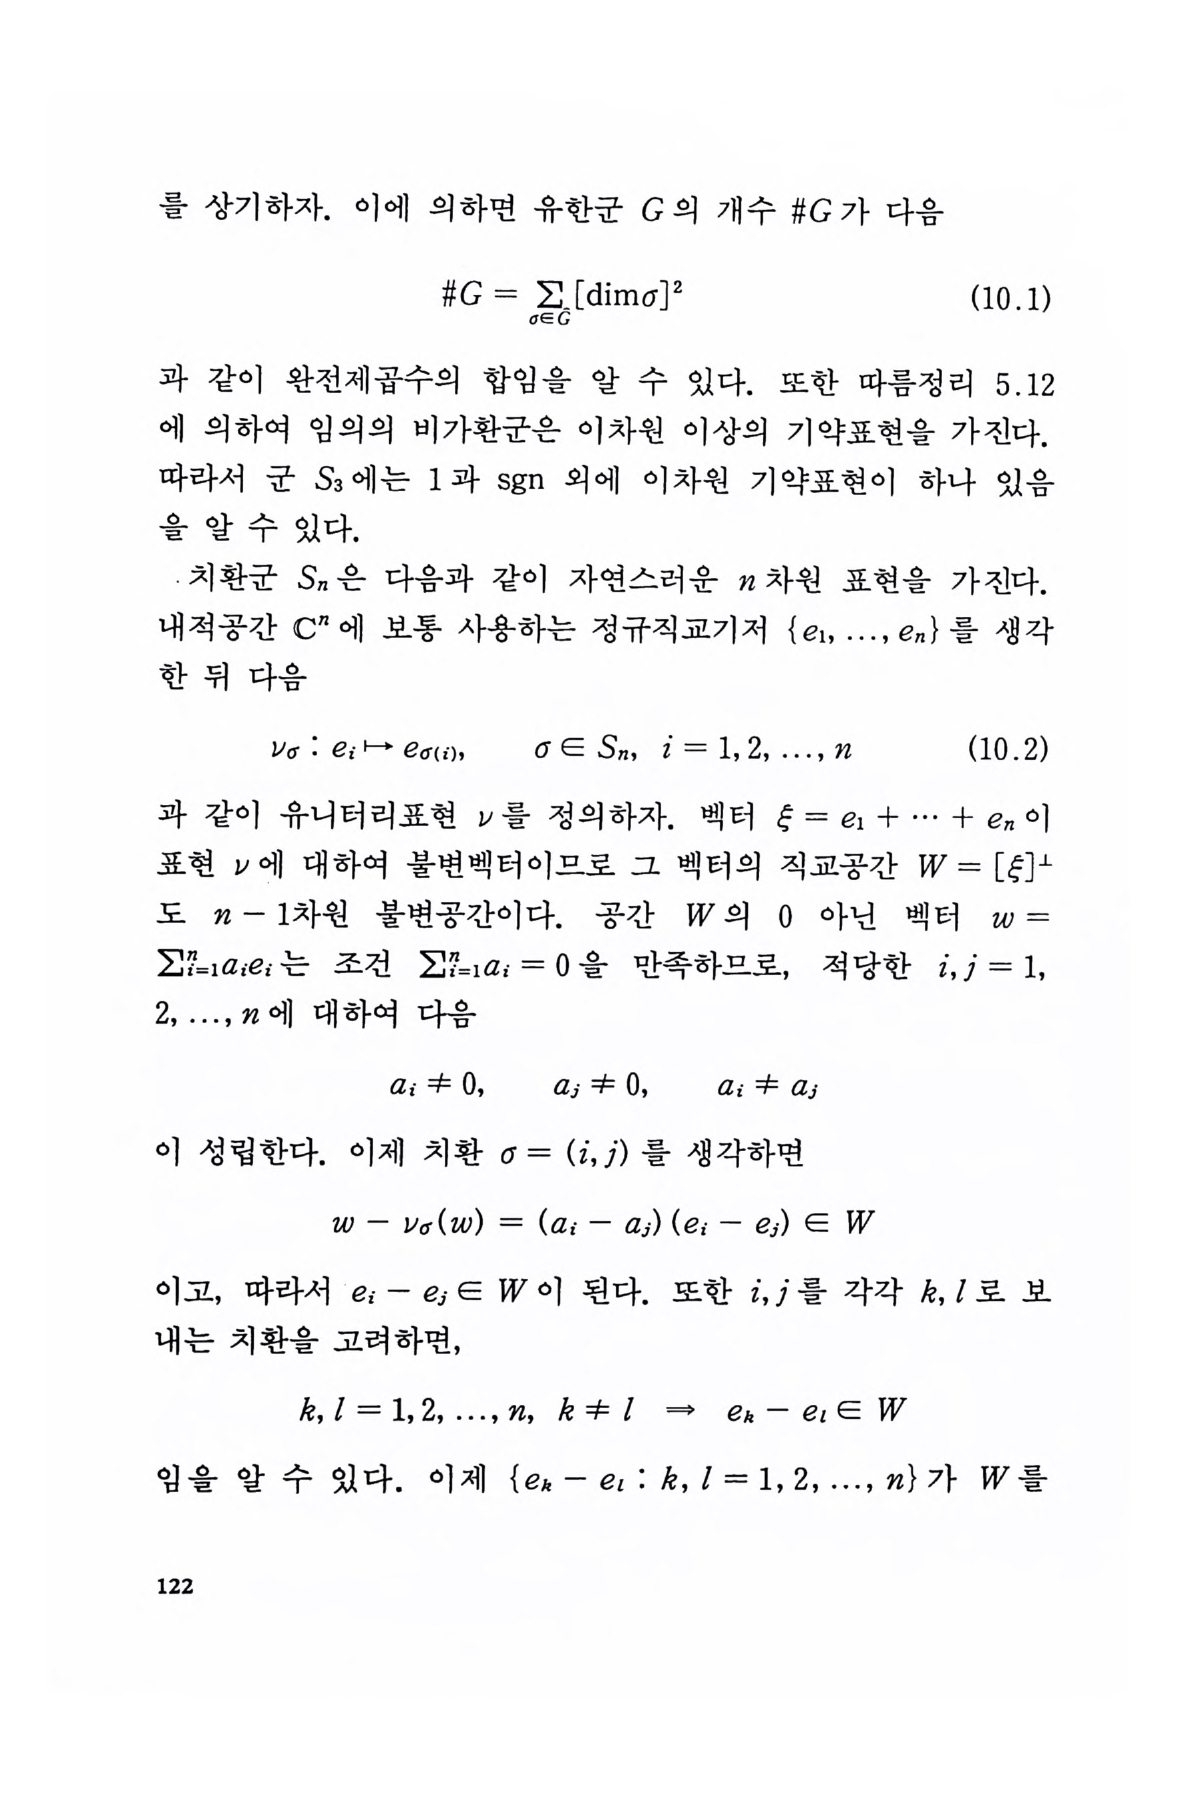 를 상기하자. 이에 의하면 유한군 G의 개수 #G가 다음
#G = ∑_{σ∈Ĝ} [dimσ]² (10.1)
과 같이 완전제곱수의 합임을 알 수 있다. 또한 따름정리 5.12
에 의하여 임의의 비가환군은 이차원 이상의 기약표현을 가진다.
따라서 군 S₃에는 1과 sgn 외에 이차원 기약표현이 하나 있음
을 알 수 있다.
치환군 Sₙ은 다음과 같이 자연스러운 n차원 표현을 가진다.
내적공간 ℂⁿ에 보통 사용하는 정규직교기저 {e₁, ..., eₙ}를 생각
한 뒤 다음
ν_σ : e_i ↦ e_{σ(i)}, σ ∈ Sₙ, i = 1, 2, ..., n (10.2)
과 같이 유니터리표현 ν를 정의하자. 벡터 ξ = e₁ + ··· + eₙ이
표현 ν에 대하여 불변벡터이므로 그 벡터의 직교공간 W = [ξ]^⊥
도 n − 1차원 불변공간이다. 공간 W의 0 아닌 벡터 w =
∑_{i=1}^n a_i e_i는 조건 ∑_{i=1}^n a_i = 0을 만족하므로, 적당한 i, j = 1,
2, ..., n에 대하여 다음
a_i ≠ 0, a_j ≠ 0, a_i ≠ a_j
이 성립한다. 이제 치환 σ = (i, j)를 생각하면
w − ν_σ(w) = (a_i − a_j)(e_i − e_j) ∈ W
이고, 따라서 e_i − e_j ∈ W이 된다. 또한 i, j를 각각 k, l로 보
내는 치환을 고려하면,
k, l = 1, 2, ..., n, k ≠ l ⟹ e_k − e_l ∈ W
임을 알 수 있다. 이제 {e_k − e_l : k, l = 1, 2, ..., n}가 W를
122